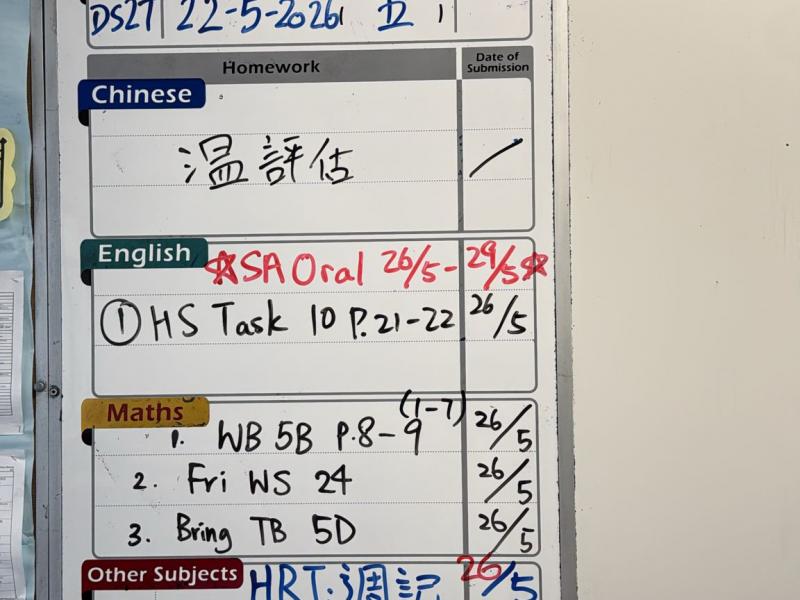 DS27 22-5-2026 五
Homework Date of Submission
Chinese
温評估 /
English
☆SA Oral 26/5-29/5☆
① HS Task 10 P.21-22 26/5
Maths
1. WB 5B P.8-9 (1-7) 26/5
2. Fri WS 24 26/5
3. Bring TB 5D 26/5
Other Subjects HRT.週記 26/5